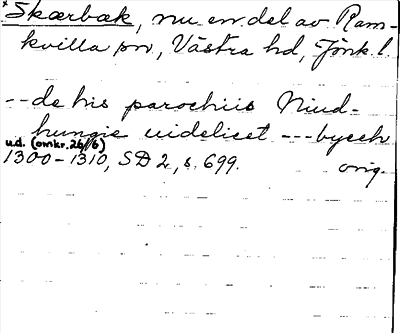 *Skærbæk, nu en del av Ram-
kvilla sn, Västra hd, Jönk. l.
--de his parochiis Niud-
hungie uidelicet ---byech
u.d. (omkr. 26/6)
1300-1310, SD 2, s. 699. orig.